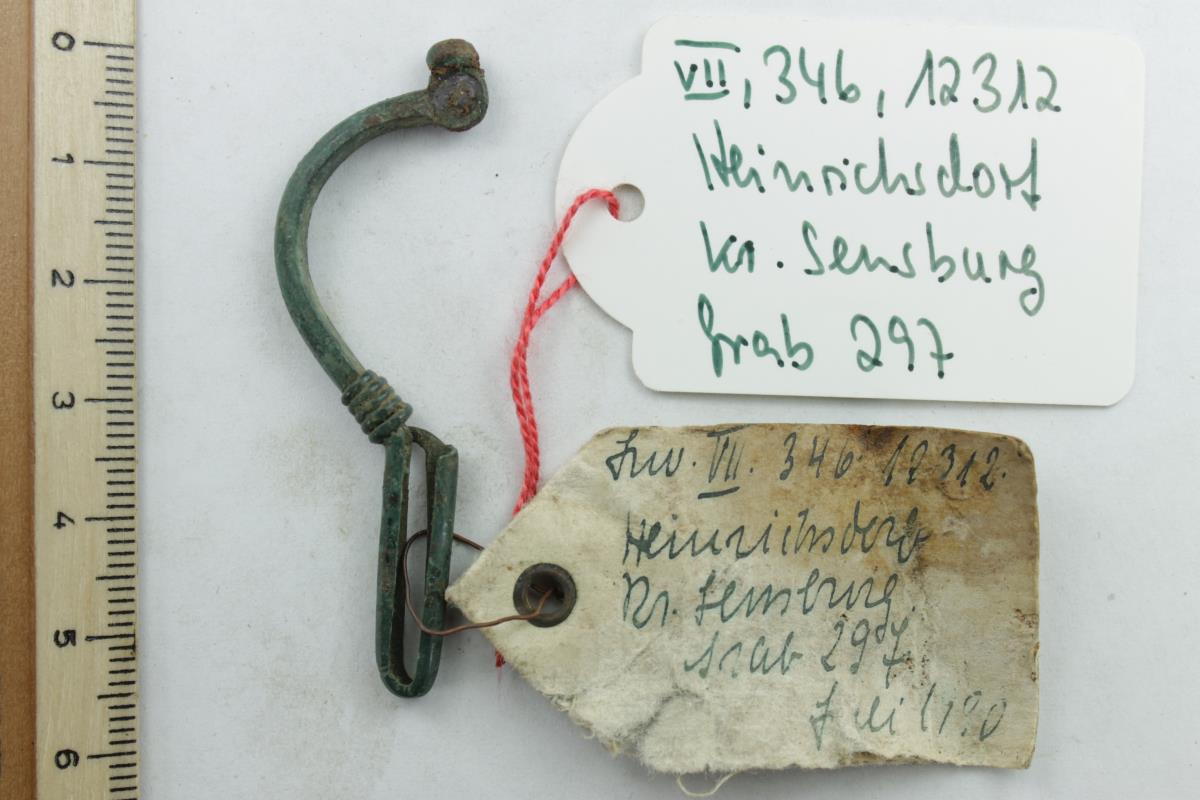 0
1
2
3
4
5
6
VII, 346, 12312
Heinrichsdorf
Kr. Sensburg
Grab 297
Inv. VII. 346. 12312.
Heinrichsdorf
Kr. Sensburg.
Grab 297